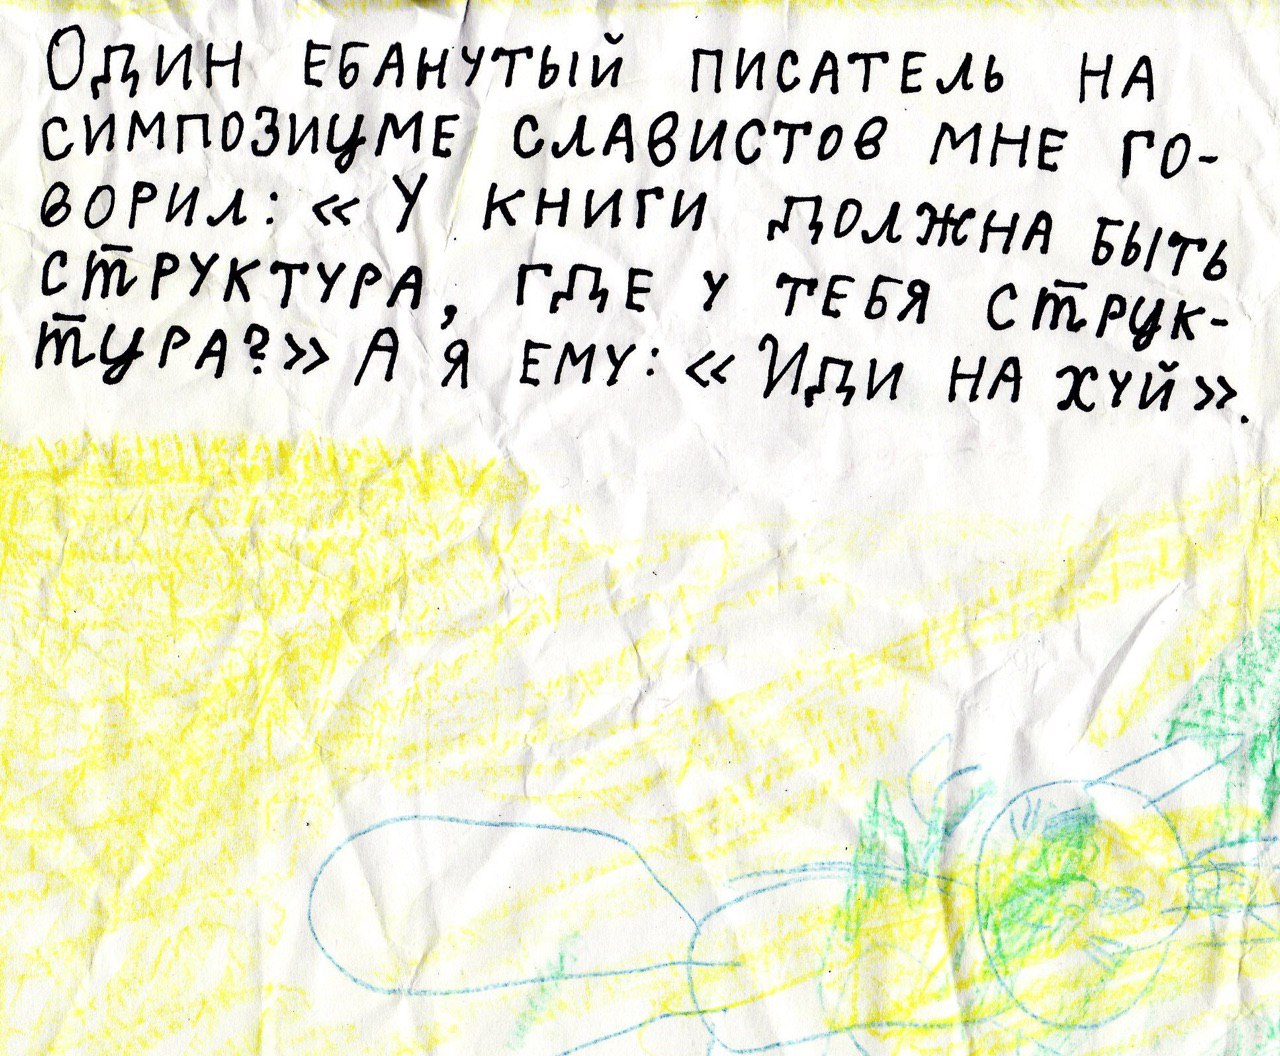 Один ебанутый писатель на
симпозиуме славистов мне го-
ворил: «У книги должна быть
структура, где у тебя струк-
тура?» А я ему: «Иди на хуй».